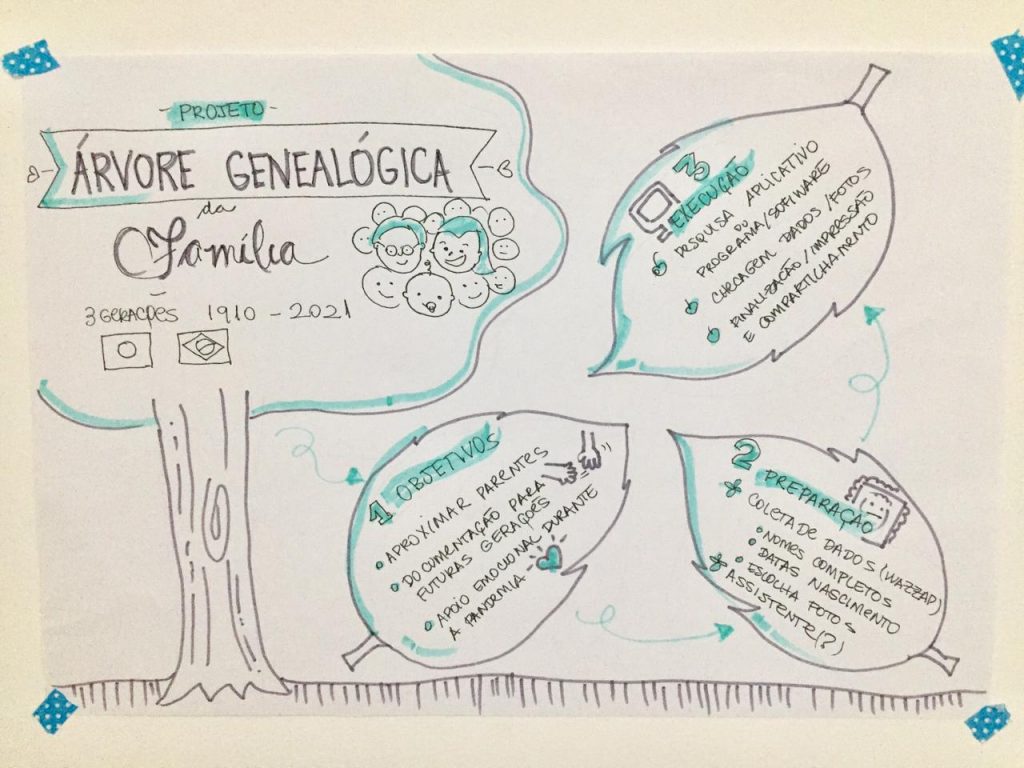 - PROJETO -
ÁRVORE GENEALÓGICA
da
Família
3 GERAÇÕES 1910 - 2021
1 OBJETIVOS
• APROXIMAR PARENTES
• DOCUMENTAÇÃO PARA
FUTURAS GERAÇÕES
• APOIO EMOCIONAL DURANTE
A PANDEMIA
2 PREPARAÇÃO
* COLETA DE DADOS (WAZZAP)
• NOMES COMPLETOS
• DATAS NASCIMENTO
• ESCOLHA FOTOS
* ASSISTENTE(?)
3 EXECUÇÃO
PESQUISA APLICATIVO
OU
PROGRAMA/SOFTWARE
CHECAGEM DADOS/FOTOS
FINALIZAÇÃO/IMPRESSÃO
E COMPARTILHAMENTO